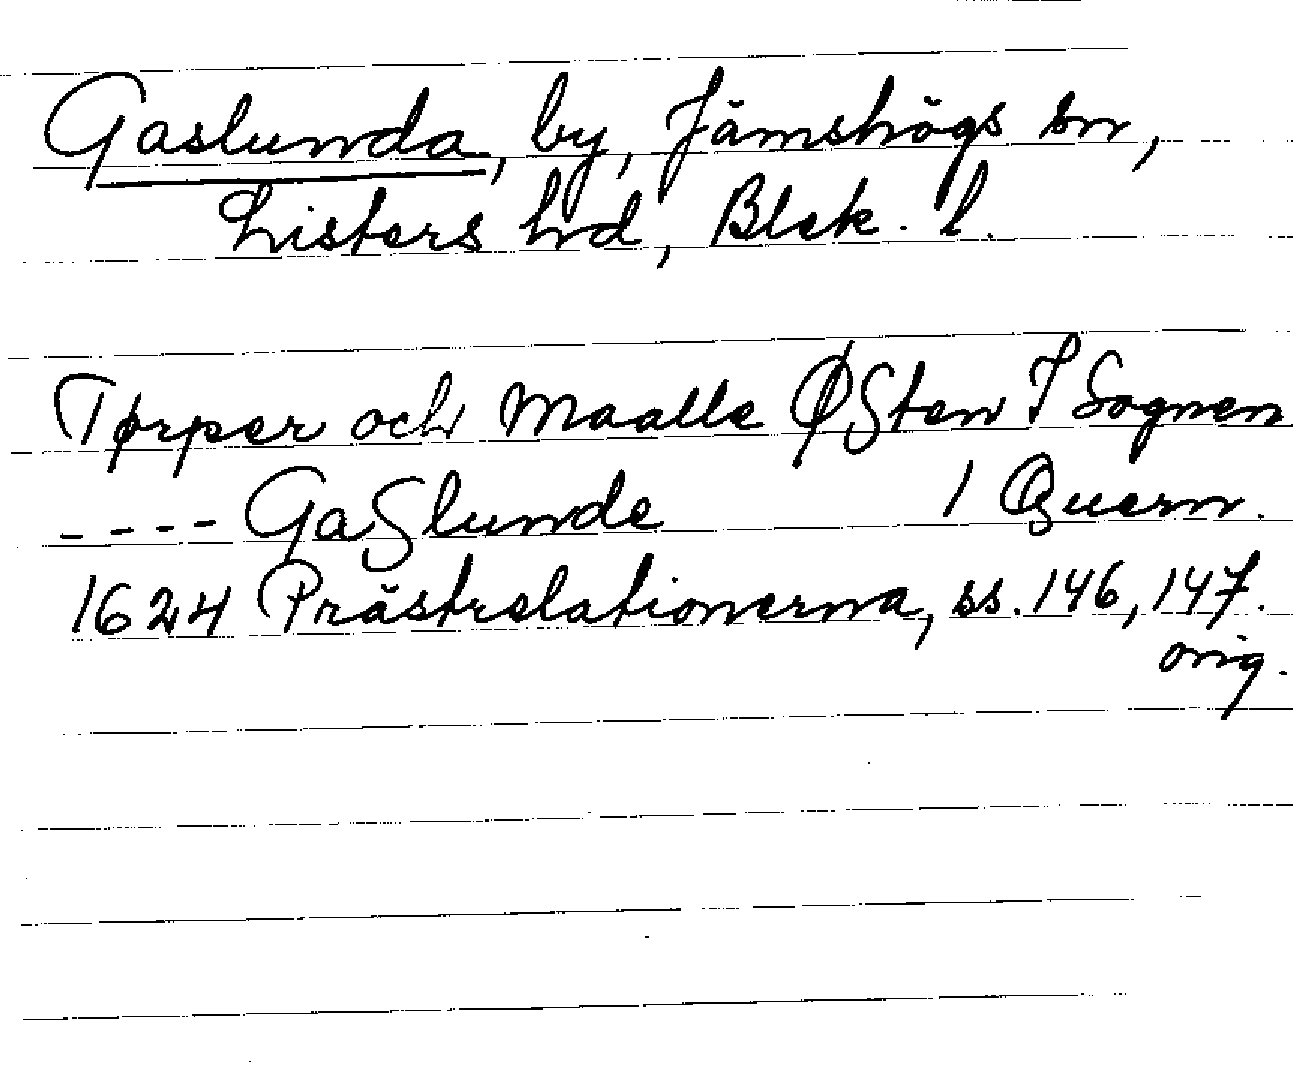 Gaslunda, by, Jämshögs sn,
Listers hd, Blek. l.
Tørper och Maalle ØSten I Sognen
---- GaSlunde 1 Quern.
1624 Prästrelationerna, ss. 146, 147.
orig.